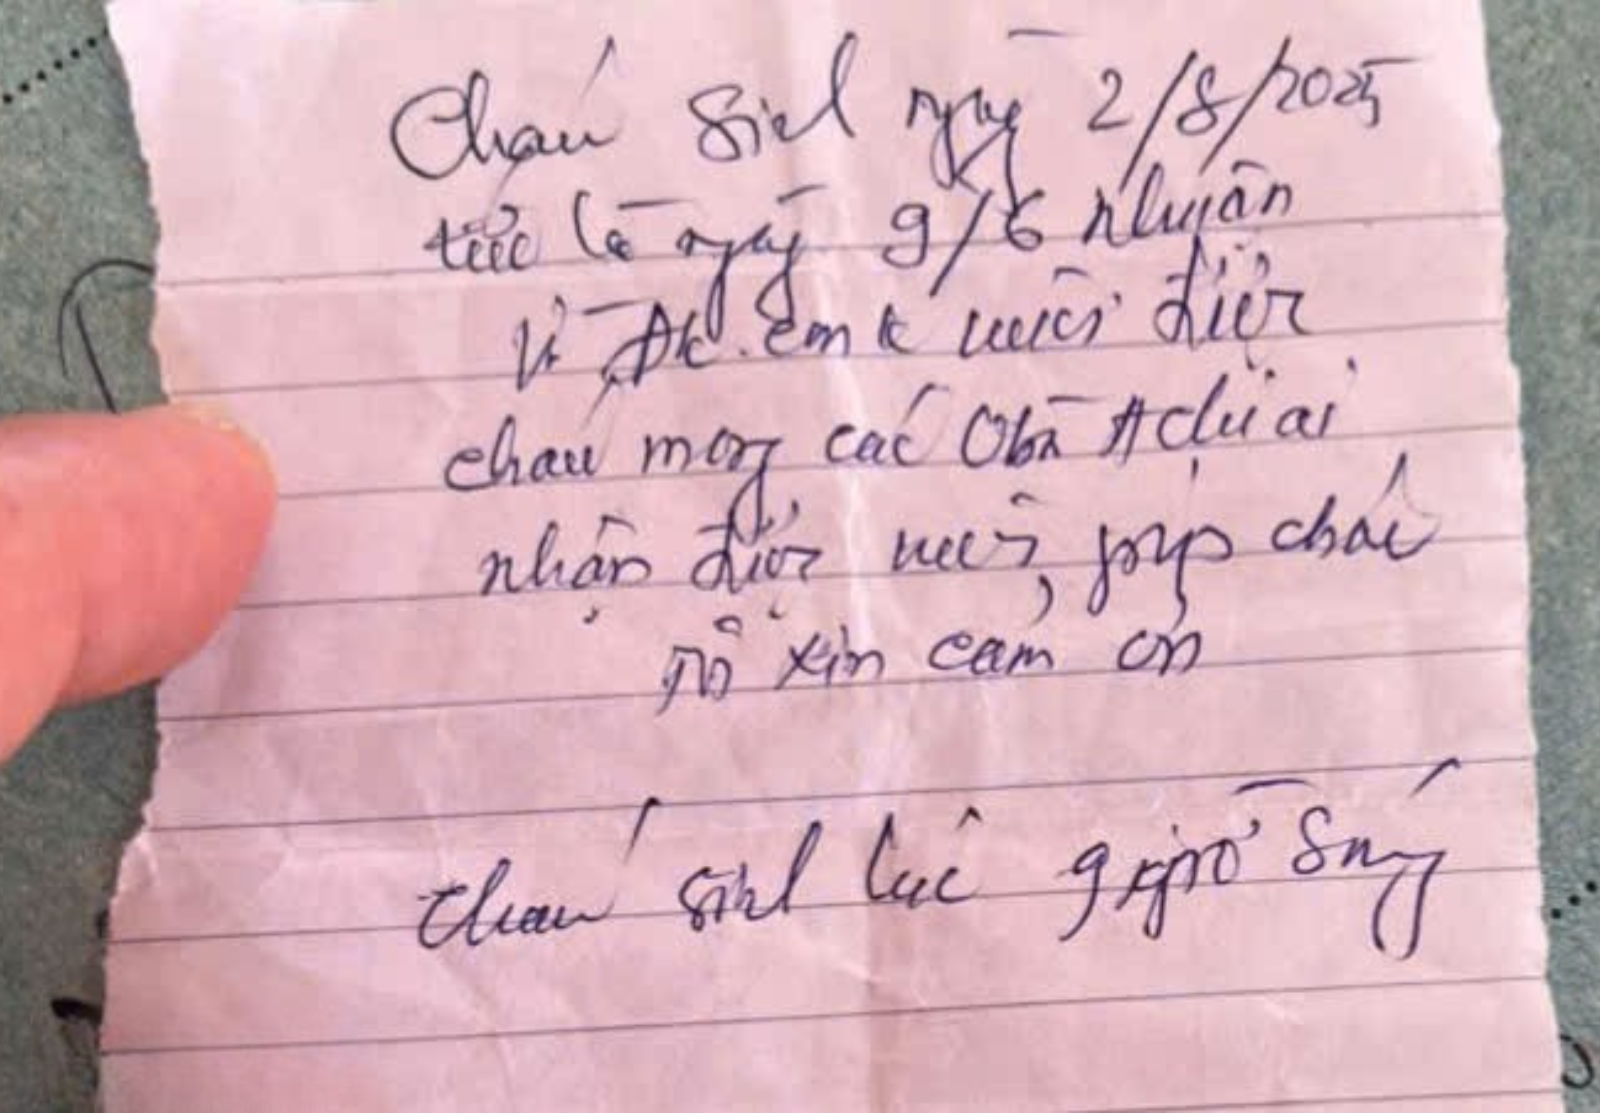 Cháu sinh ngày 2/8/2025
tức là ngày 9/6 nhuận
Vì đk em k nuôi được
cháu mong các ÔBà A chị ai
nhận được nuôi giúp cháu
nó xin cảm ơn
Cháu sinh lúc 9 giờ sáng